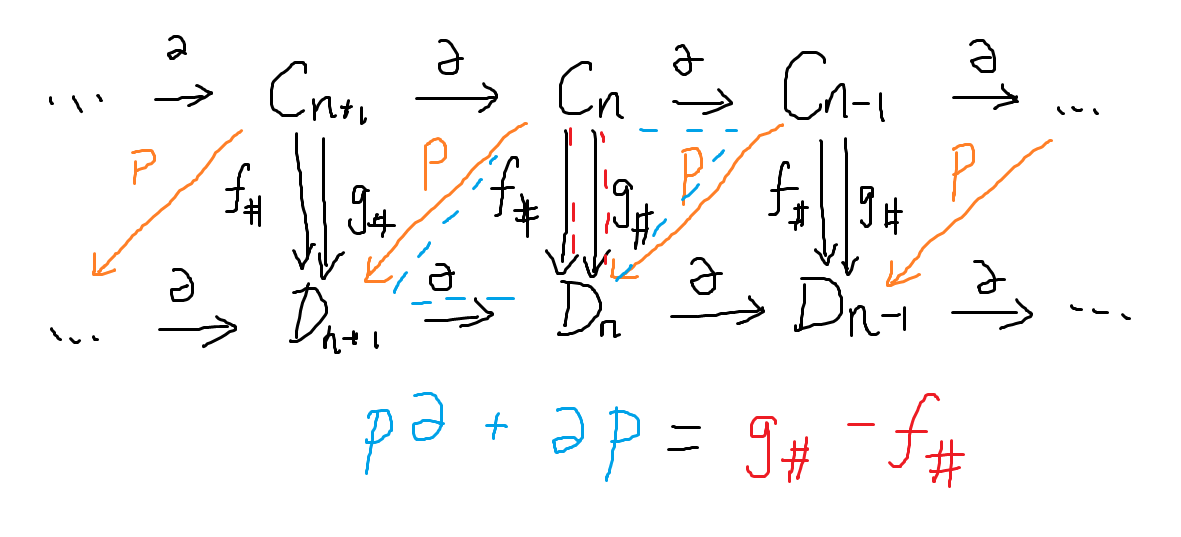 ∂ ∂ ∂ ∂
... → Cₙ₊₁ → Cₙ → Cₙ₋₁ → ...
P f# g# P f# g# P f# g# P
∂ ∂ ∂ ∂
... → Dₙ₊₁ → Dₙ → Dₙ₋₁ → ...
P∂ + ∂P = g# - f#